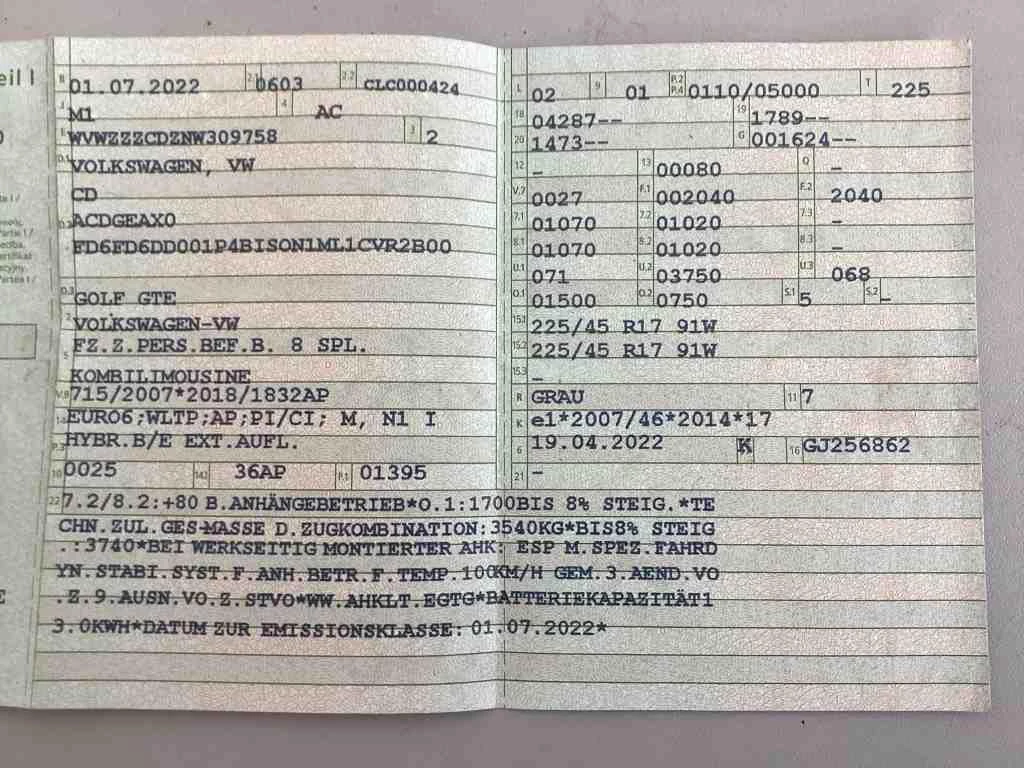 eil I
B 01.07.2022 2.1 0603 2.2 CLC000424
J M1 4 AC
E WVWZZZCDZNW309758 3 2
D.1 VOLKSWAGEN, VW
CD
D.2 ACDGEAX0
FD6FD6DD001P4BISON1ML1CVR2B00
D.3 GOLF GTE
2 VOLKSWAGEN-VW
5 FZ.Z.PERS.BEF.B. 8 SPL.
KOMBILIMOUSINE
V.9 715/2007*2018/1832AP
14 EURO6;WLTP;AP;PI/CI; M, N1 I
P.3 HYBR.B/E EXT.AUFL.
10 0025 14.1 36AP P.1 01395
L 02 9 01 P.2 P.4 0110/05000 T 225
18 04287-- 19 1789--
20 1473-- G 001624--
12 – 13 00080 Q –
V.7 0027 F.1 002040 F.2 2040
7.1 01070 7.2 01020 7.3 –
8.1 01070 8.2 01020 8.3 –
U.1 071 U.2 03750 U.3 068
O.1 01500 O.2 0750 S.1 5 S.2 –
15.1 225/45 R17 91W
15.2 225/45 R17 91W
15.3 –
R GRAU 11 7
K e1*2007/46*2014*17
6 19.04.2022 K 16 GJ256862
21 –
22 7.2/8.2:+80 B.ANHÄNGEBETRIEB*O.1:1700BIS 8% STEIG.*TE
CHN.ZUL.GES-MASSE D.ZUGKOMBINATION:3540KG*BIS8% STEIG
.:3740*BEI WERKSEITIG MONTIERTER AHK: ESP M.SPEZ.FAHRD
YN.STABI.SYST.F.ANH.BETR.F.TEMP.100KM/H GEM.3.AEND.VO
.Z.9.AUSN.VO.Z.STVO*WW.AHKLT.EGTG*BATTERIEKAPAZITÄT1
3.0KWH*DATUM ZUR EMISSIONSKLASSE: 01.07.2022*